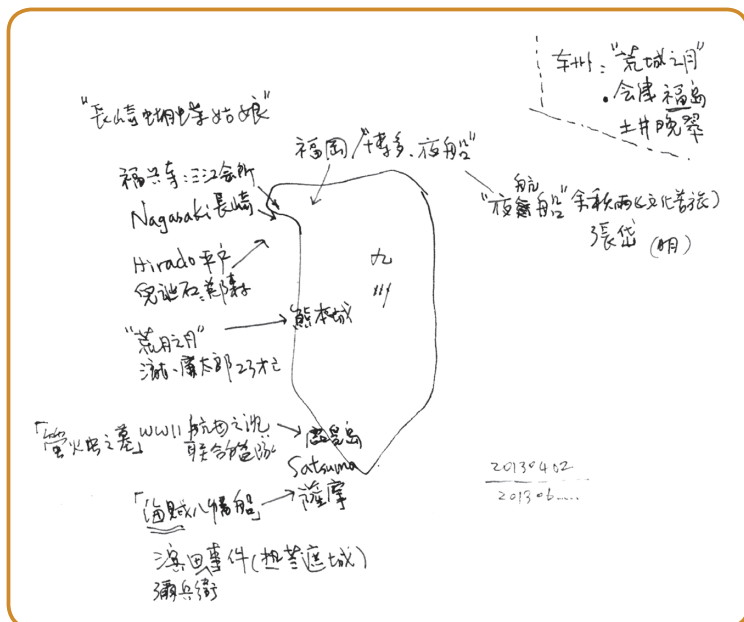 本州："荒城之月"
・会津 福島
土井晚翠
"長崎蝴蝶姑娘"
福岡／"博多夜船"
福興寺：三江会所
Nagasaki 長崎
"夜航船" 余秋雨《文化苦旅》
張岱 (明)
Hirado 平戶
兒誕石：鄭森
九
州
"荒月之月"
熊本城
瀧廉太郎 23才亡
「螢火虫之墓」WWII 航母之沈
联合艦隊
鹿兒島
Satsuma
薩摩
「海賊八幡船」
濱田事件(热蘭遮城)
彌兵衛
20130402
201306......